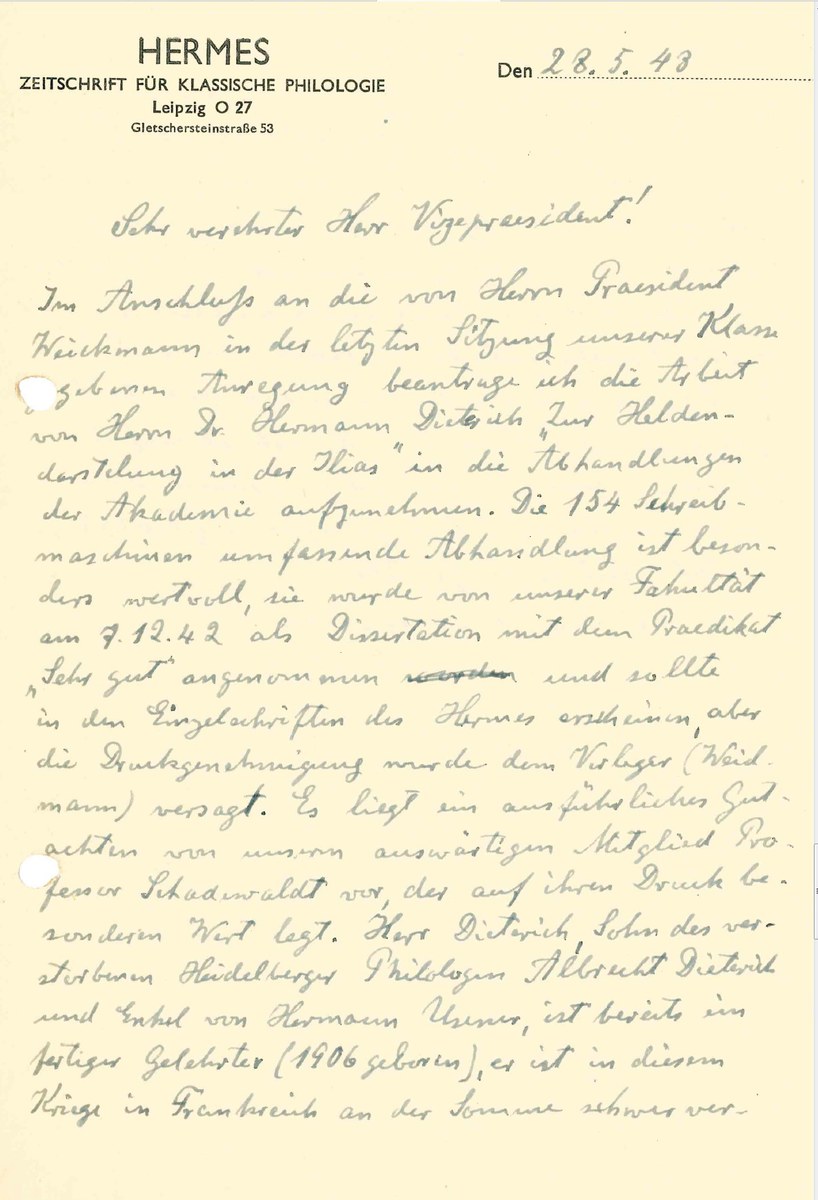 HERMES
ZEITSCHRIFT FÜR KLASSISCHE PHILOLOGIE
Leipzig O 27
Gletschersteinstraße 53
Den 28. 5. 43
Sehr verehrter Herr Vizepraesident!
Im Anschluß an die von Herrn Praesident
Weickmann in der letzten Sitzung unserer Klasse
gebenen Anregung beantrage ich die Arbeit
von Herrn Dr. Hermann Dieterich „Zur Helden-
darstelung in der Ilias" in die Abhandlungen
der Akademie aufzunehmen. Die 154 Schreib-
maschinen umfassende Abhandlung ist beson-
ders wertvoll, sie wurde von unserer Fakultät
am 7.12.42 als Dissertation mit dem Praedikat
„Sehr gut" angenommen worden und sollte
in den Einzelschriften des Hermes erscheinen, aber
die Druckgenehmigung wurde dem Verleger (Weid-
mann) versagt. Es liegt ein ausführliches Gut-
achten von unserm auswärtigen Mitglied Pro-
fessor Schadewaldt vor, der auf ihren Druck be-
sonderen Wert legt. Herr Dieterich, Sohn des ver-
storbenen Heidelberger Philologen Albrecht Dieterich
und Enkel von Hermann Usener, ist bereits ein
fertiger Gelehrter (1906 geboren), er ist in diesem
Kriege in Frankreich an der Somme schwer ver-